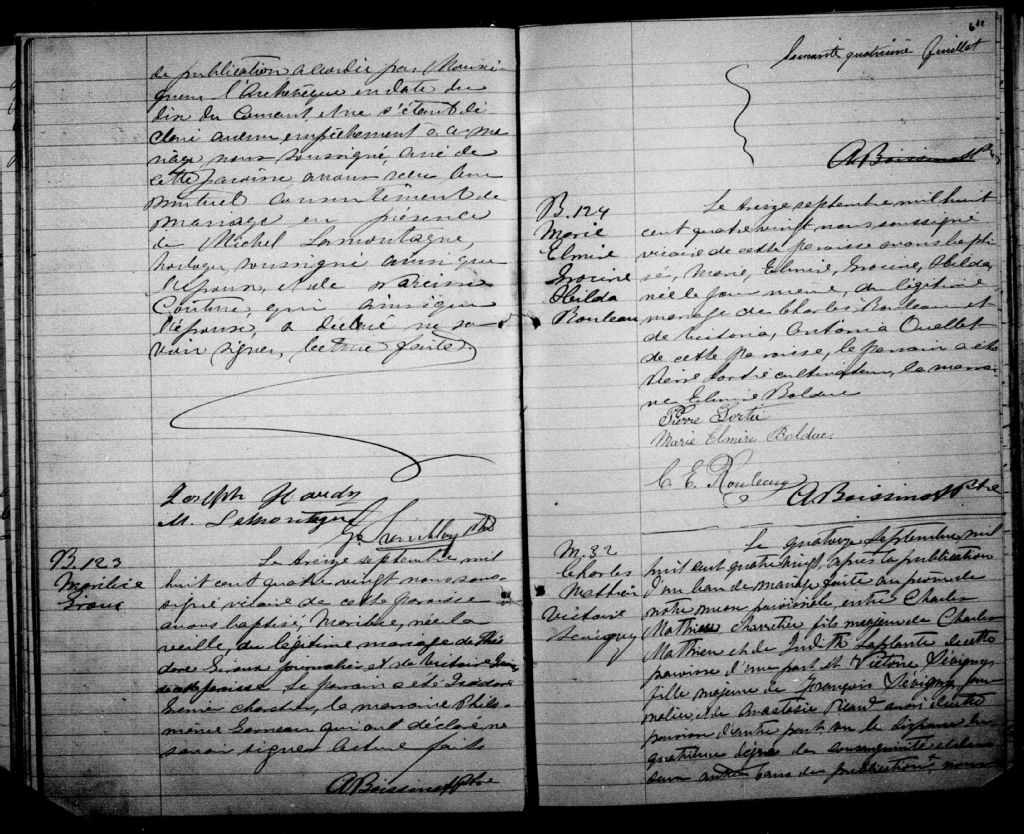 de publication accordée par Monsei-
gneur l'Archevêque en date du
dix du courant, et ne s'étant dé
claré aucun empêchement à ce ma
riage, nous soussigné, curé de
cette paroisse avons reçu leur
mutuel consentement de
mariage en présence
de Michel Lamontagne,
horloger soussigné ainsi que
l'époux, et de Narcisse
Couture, qui ainsi que
l'épouse, a déclaré ne sa-
voir signer, lecture faite.
Joseph Hardy
M. Lamontagne
G. Tremblay Ptre
B. 123
Le treize septembre mil
huit cent quatre vingt nous sous-
signé vicaire de cette paroisse
avons baptisé, née la
veille, du légitime mariage de Théo
dore Giroux journalier et de
de cette paroisse. Le parrain a été Isidore
la marraine Philo-
mène Garneau qui ont déclaré ne
savoir signer lecture faite
A Boissinot Ptre
Soixante quatrième feuillet
A Boissinot Ptre
B. 124
Marie
Elmire
Hilda
Rouleau
Le treize septembre mil huit
cent quatre vingt nous soussigné
vicaire de cette paroisse avons bapti
sé, Marie, Elmire, Hilda,
née le jour même, du légitime
mariage de Charles Rouleau et
de Victoria, Antonia Ouellet
de cette paroisse, le parrain a été
Pierre Fortié cultivateur, la marrai-
ne Elmire Bolduc
Pierre Fortié
Marie Elmire Bolduc
C. E. Rouleau
A Boissinot Ptre
M. 32
Charles
Mathieu
Victoire
Sévigny
Le quatorze Septembre mil
huit cent quatre vingt, après la publication
d'un ban de mariage faite au prône de
notre messe paroissiale, entre Charles
Mathieu, charretier fils majeur de Charles
Mathieu et de Judith Laplante de cette
paroisse d'une part et Victoire Sévigny
fille majeure de François Sévigny jour
nalier et de Anastasie Picard aussi de cette
paroisse, d'autre part vu la dispense du
quatrième degré de consanguinité et celle
deux autres bans de publication, nous